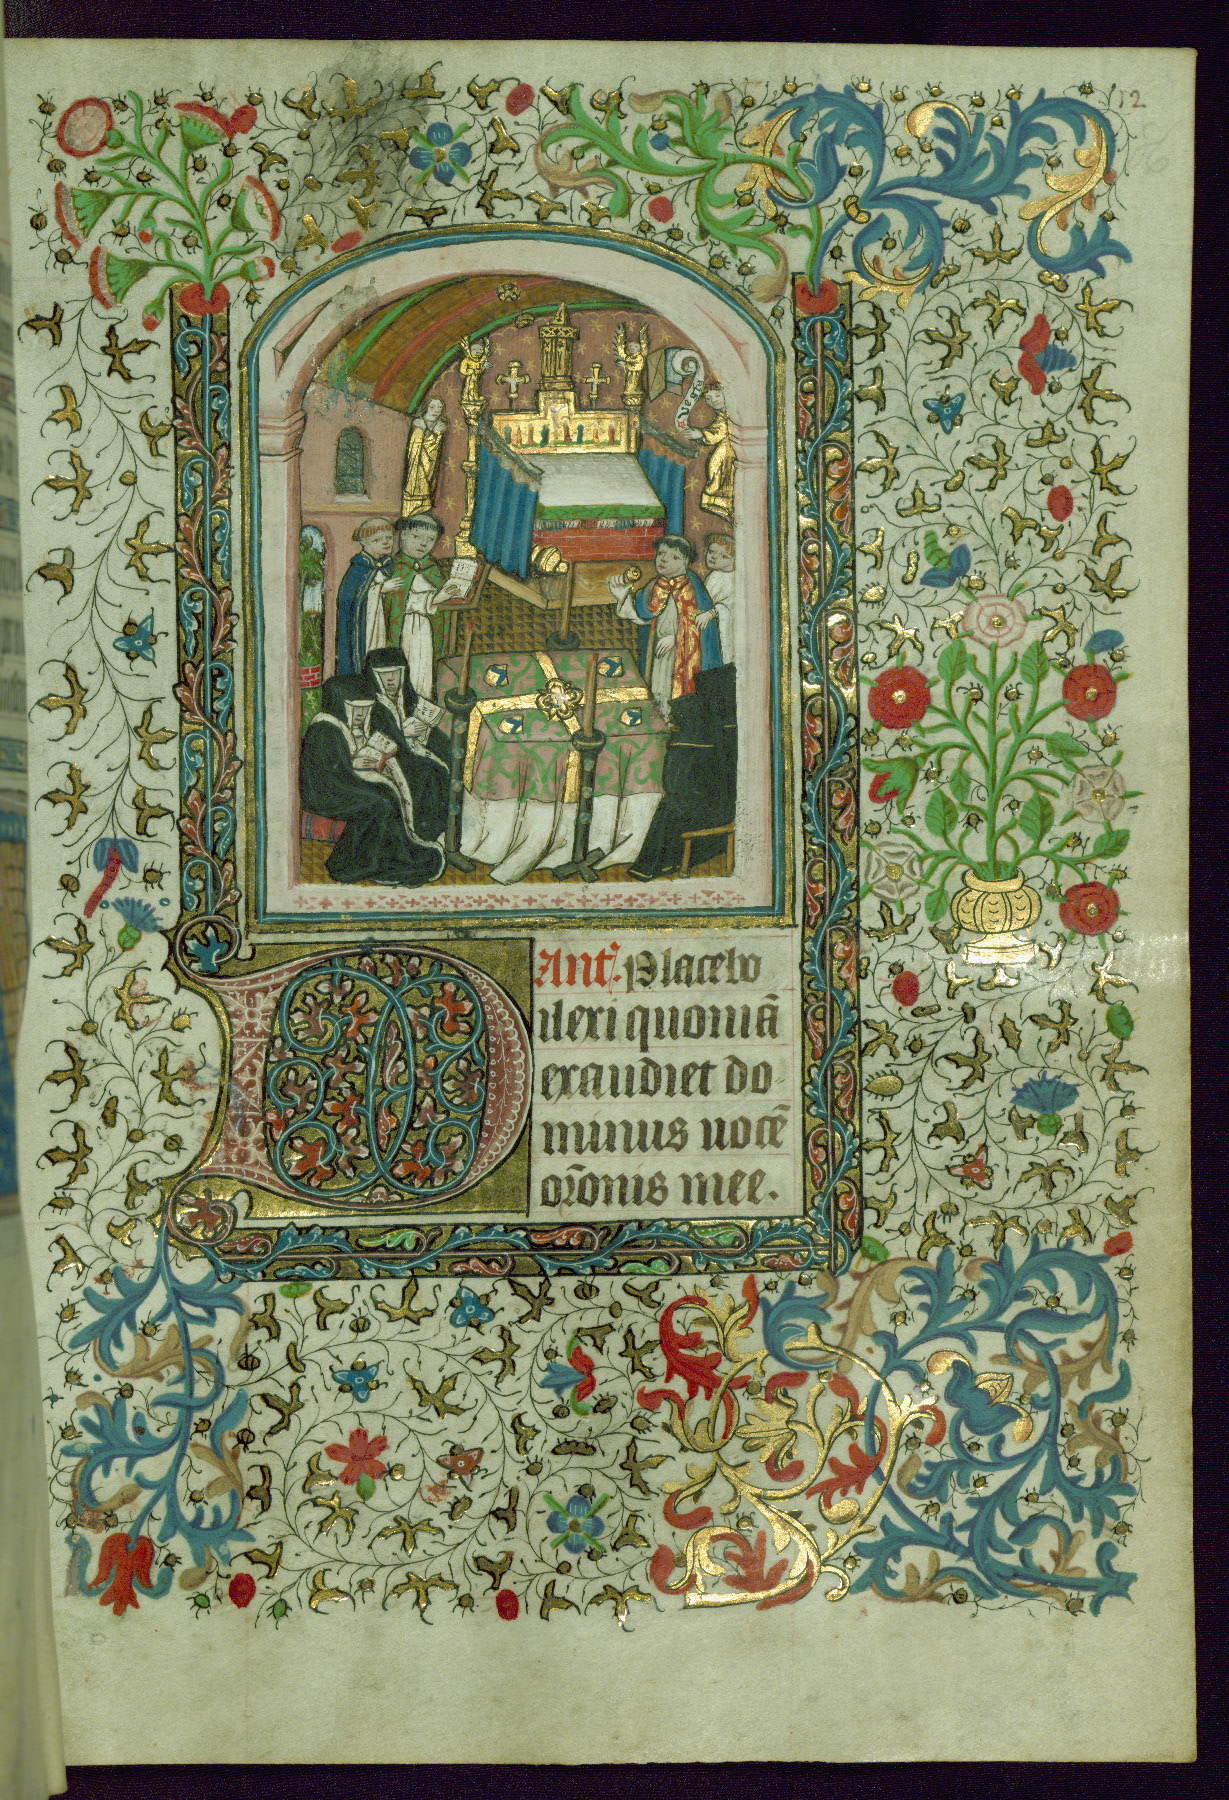 12
Ant᷑. Placebo
Dilexi quoniā
exaudiet do
minus uocē
or̄onis mee.